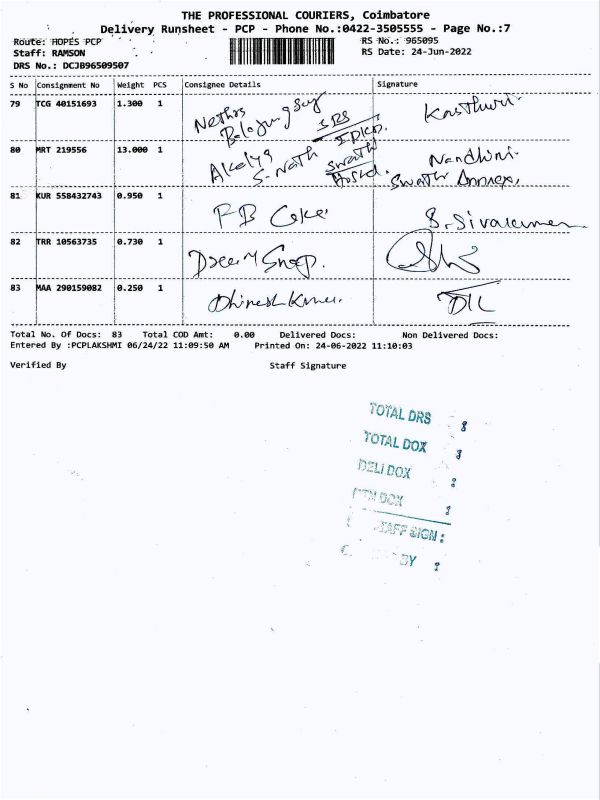 THE PROFESSIONAL COURIERS, Coimbatore
Delivery Runsheet - PCP - Phone No.:0422-3505555 - Page No.:7
Route: HOPES PCP RS No.: 965095
Staff: RAMSON RS Date: 24-Jun-2022
DRS No.: DCJB96509507
S No Consignment No Weight PCS Consignee Details Signature
79 TCG 40151693 1.300 1 Kasthuri
80 MRT 219556 13.000 1 S. Nath Swath Nandhini
Swath Annex,
81 KUR 558432743 0.950 1 FB Cake S. Sivakumar
82 TRR 10563735 0.730 1 Dream Snap.
83 MAA 290159082 0.250 1 Dhinesh Kumar.
Total No. Of Docs: 83 Total COD Amt: 0.00 Delivered Docs: Non Delivered Docs:
Entered By :PCPLAKSHMI 06/24/22 11:09:50 AM Printed On: 24-06-2022 11:10:03
Verified By Staff Signature
TOTAL DRS :
TOTAL DOX :
DELI DOX :
RTN DOX :
STAFF SIGN :
BY :